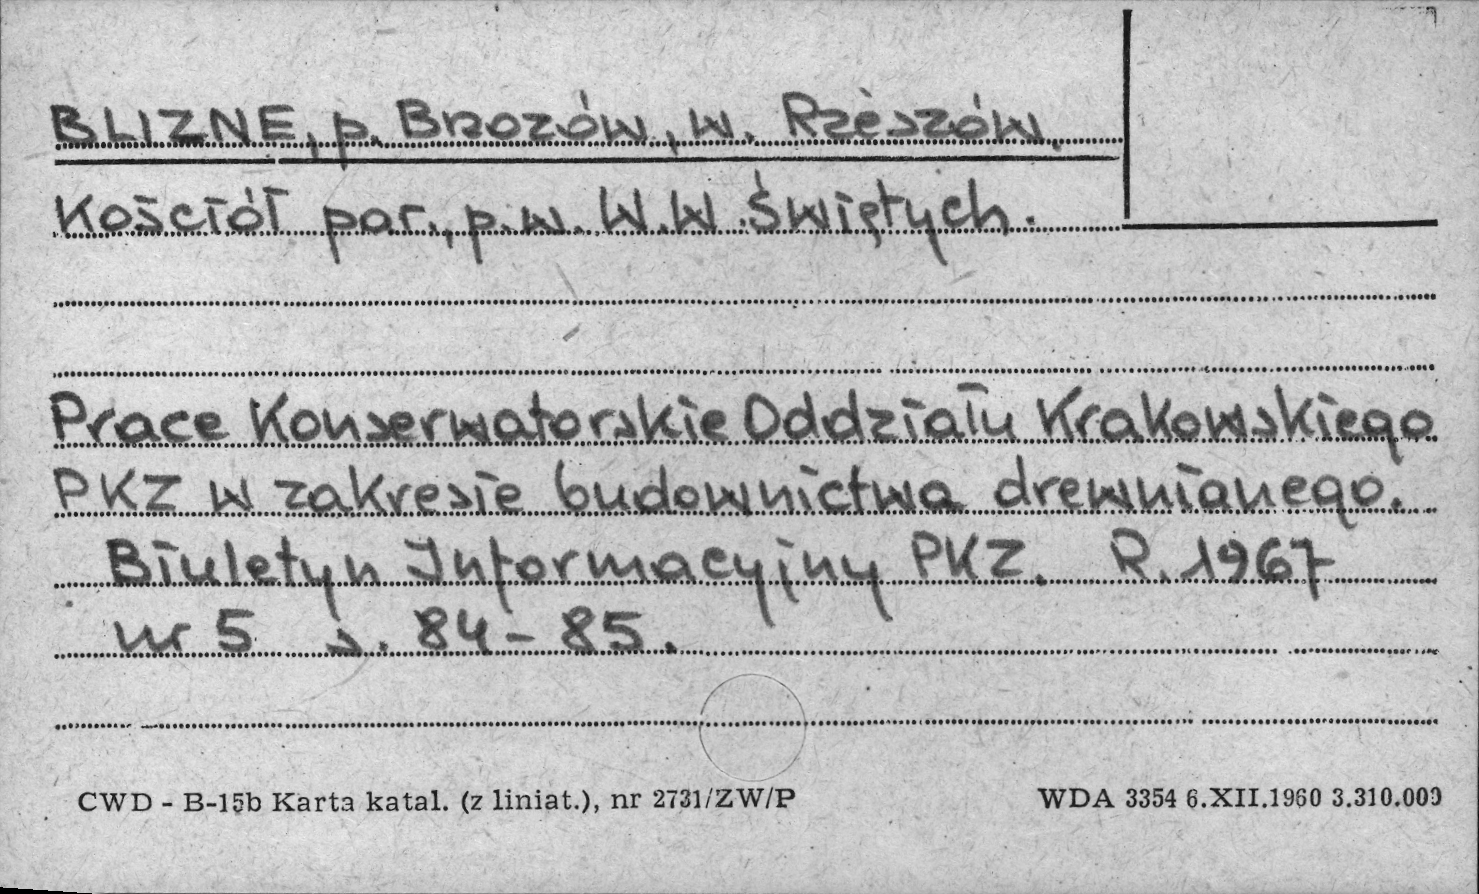 BLIZNE, p. Brozów, w. Rzeszów.
Kościół par., p.w. W.W. Świętych.
Prace Konserwatorskie Oddziału Krakowskiego
PKZ w zakresie budownictwa drewnianego.
Biuletyn Informacyjny PKZ. R. 1967
nr 5 s. 84-85.
CWD - B-15b Karta katal. (z liniat.), nr 2731/ZW/P
WDA 3354 6.XII.1960 3.310.000